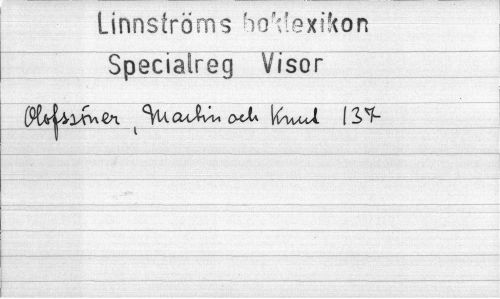 Linnströms boklexikon
Specialreg Visor
Olofssöner, Martin och Knut 137